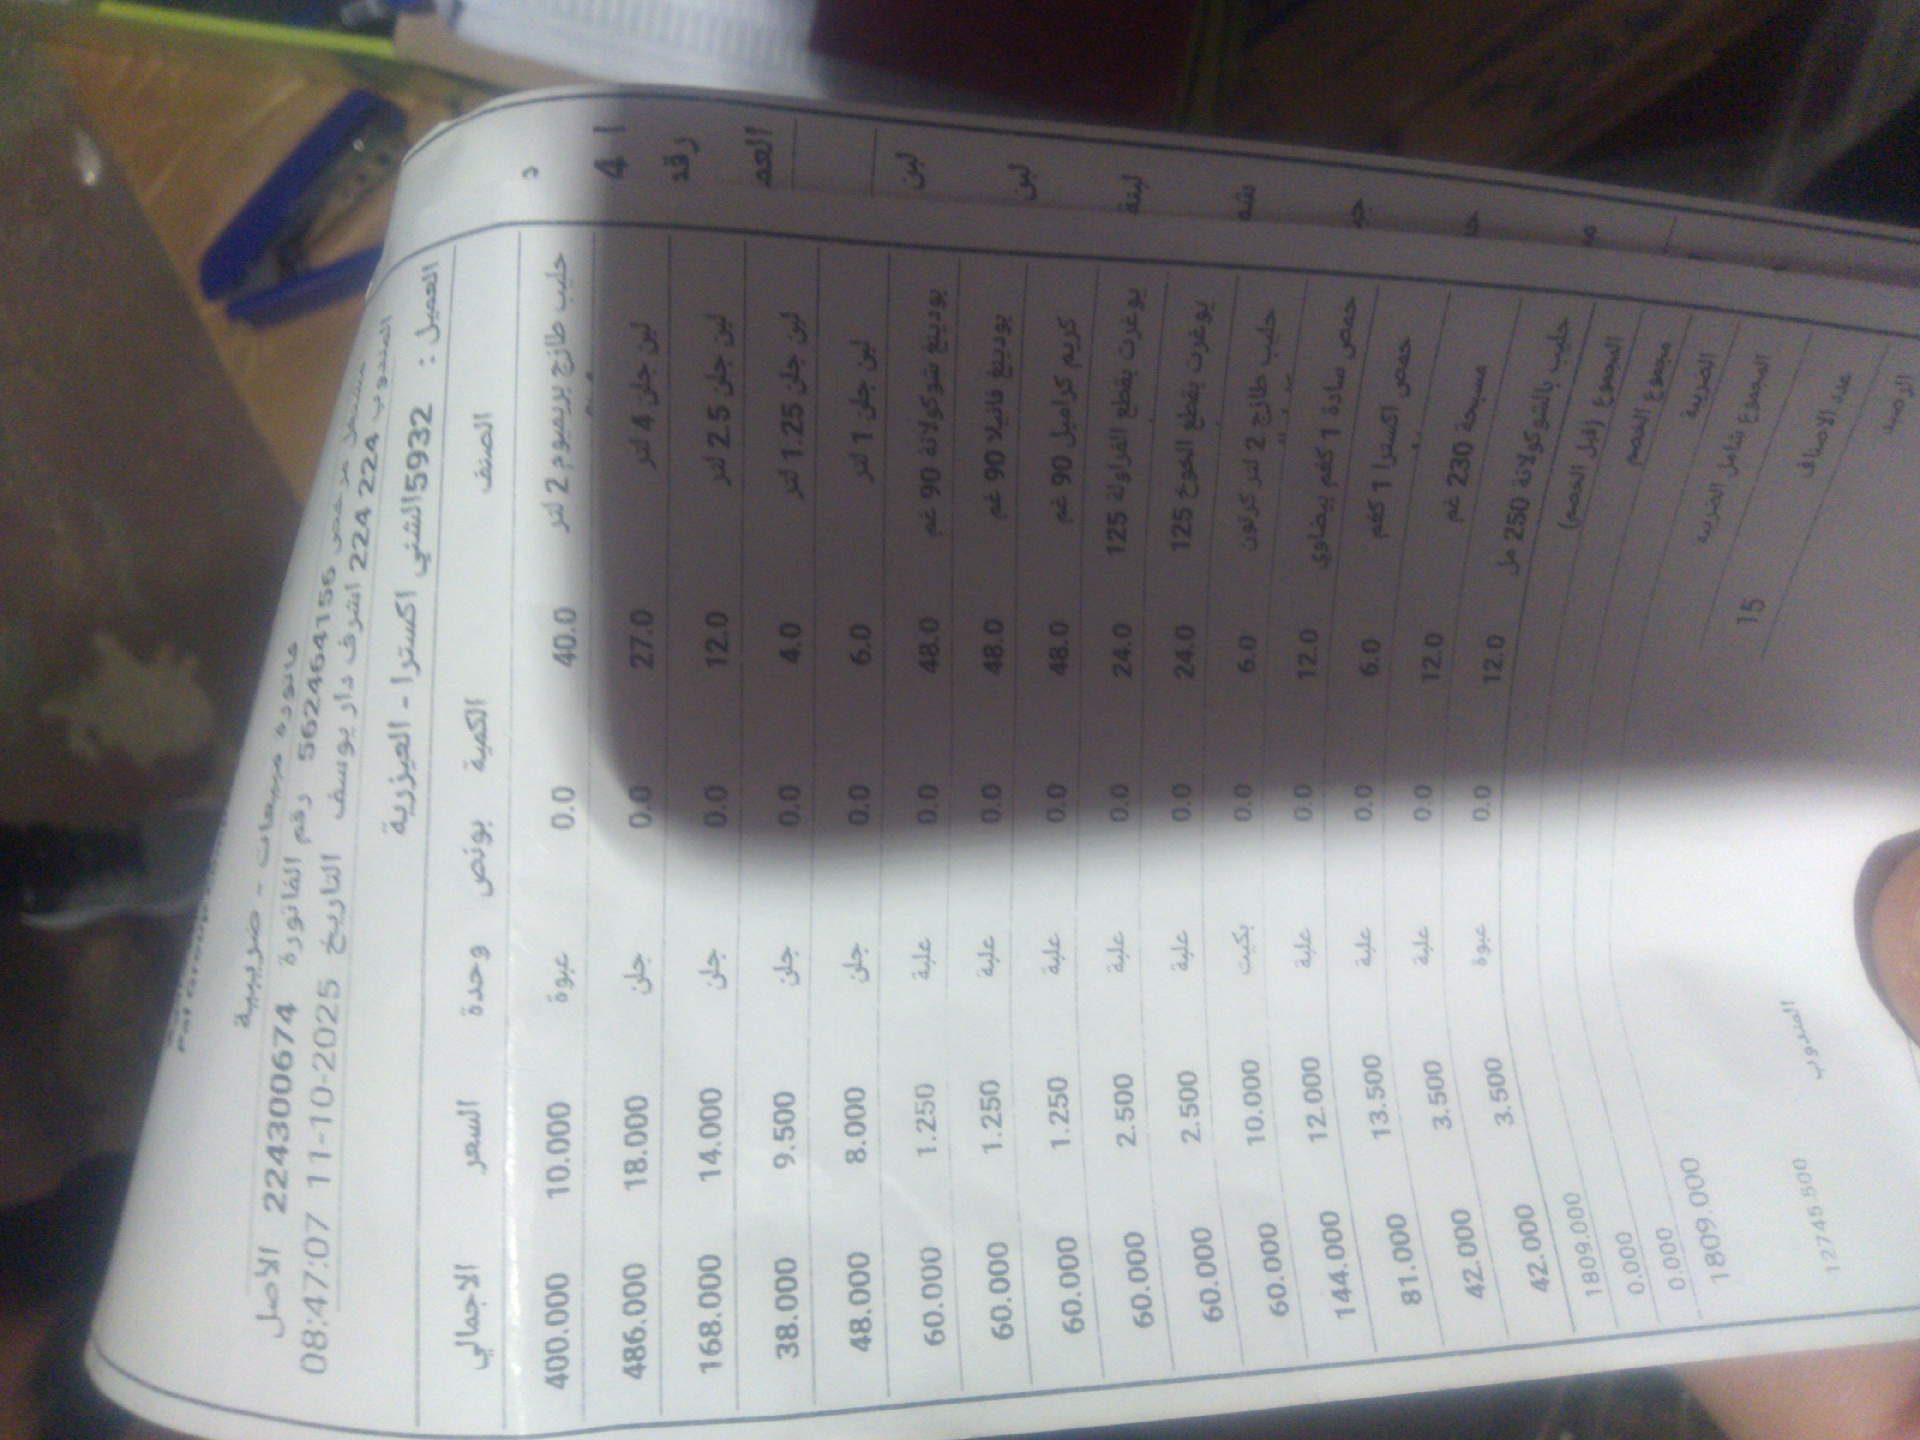 فاتورة مبيعات - ضريبية
مشتغل مرخص 562464156 رقم الفاتورة 224300674 الاصل
المندوب 224 224 اشرف دار يوسف التاريخ 11-10-2025 08:47:07
العميل : 59932الشني اكسترا - العيزرية
الصنف الكمية بونص وحدة السعر الاجمالي
حليب طازج بريميوم 2 لتر 40.0 0.0 عبوة 10.000 400.000
لبن جلن 4 لتر 27.0 0.0 جلن 18.000 486.000
لبن جلن 2.5 لتر 12.0 0.0 جلن 14.000 168.000
لبن جلن 1.25 لتر 4.0 0.0 جلن 9.500 38.000
لبن جلن 1 لتر 6.0 0.0 جلن 8.000 48.000
بودينغ شوكولاتة 90 غم 48.0 0.0 علبة 1.250 60.000
بودينغ فانيلا 90 غم 48.0 0.0 علبة 1.250 60.000
كريم كراميل 90 غم 48.0 0.0 علبة 1.250 60.000
يوغرت بقطع الفراولة 125 24.0 0.0 علبة 2.500 60.000
يوغرت بقطع الخوخ 125 24.0 0.0 علبة 2.500 60.000
حليب طازج 2 لتر كرتون 6.0 0.0 بكيت 10.000 60.000
حمص سادة 1 كغم بيضاوي 12.0 0.0 علبة 12.000 144.000
حمص اكسترا 1 كغم 6.0 0.0 علبة 13.500 81.000
مسبحة 230 غم 12.0 0.0 علبة 3.500 42.000
حليب بالشوكولاتة 250 مل 12.0 0.0 عبوة 3.500 42.000
المجموع (قبل الخصم) 1809.000
مجموع الخصم 0.000
الضريبة 0.000
المجموع شامل الضريبة 1809.000
عدد الاصناف 15
الرصيد المندوب 12745.500
4
لبن
لبن
لبنة